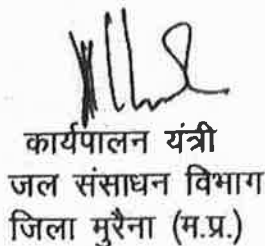 कार्यपालन यंत्री
जल संसाधन विभाग
जिला मुरैना (म.प्र.)